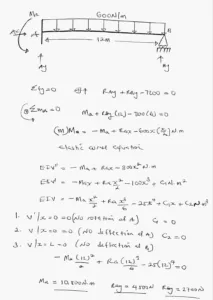 600N/m
MA
A
B
12m
Ay
By
Σfy=0 ⊕↑ RAy + RBy - 7200 = 0
ΣmA=0 MA + RBy(12) - 300(6) = 0
(m) M = -MA + RAx - 600x(x/2) N·m
elastic curve equation
EIV" = -MA + RAx - 300x² N·m
EIV' = -MAx + RA x²/2 - 100x³ + C1 N·m²
EIV = -MA x²/2 + RA x³/6 - 25x⁴ + C1x + C2 N·m³
1. V'/x=0 =0 (no rotation at A) C1 = 0
2. V/x=0 =0 (No deflection at A) C2 = 0
3. V/x=L = 0 (No deflection at B)
-MA(12)²/2 + RA(12)³/6 - 25(12)⁴ = 0
MA = 10800 N·m RAy = 4500N RBy = 2700N